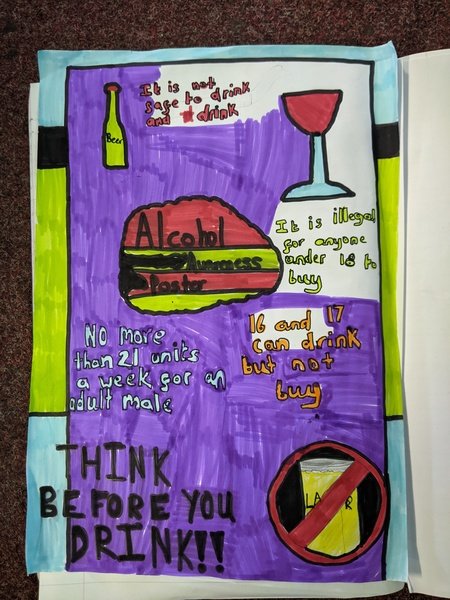 It is not
safe to drink
and drink
Beer
Alcohol
Poster
It is illegal
for anyone
under 18 to
buy
16 and 17
can drink
but not
buy
NO more
than 21 units
a week for an
adult male
THINK
BEFORE YOU
DRINK!!
LA R